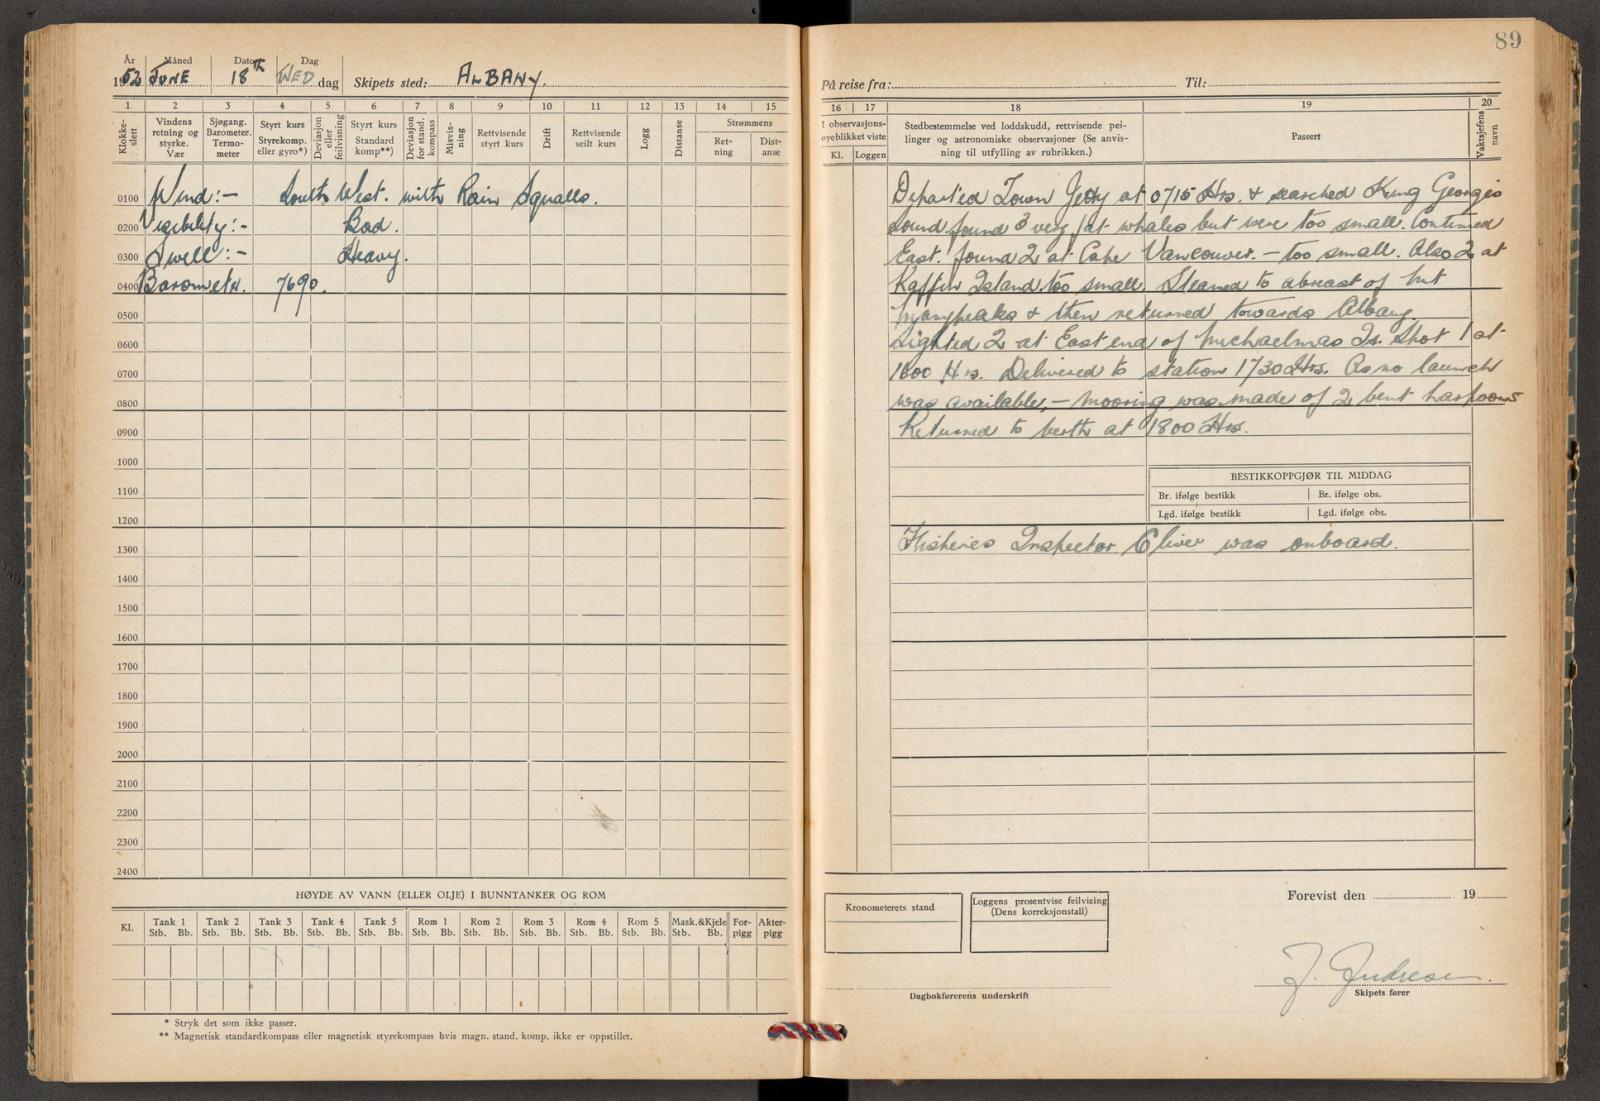 År Måned Dato Dag
1952 JUNE 18th WED dag Skipets sted: ALBANY.
1 2 3 4 5 6 7 8 9 10 11 12 13 14 15
Klokkeslett
Vindens retning og styrke. Vær
Sjøgang. Barometer. Termometer
Styrt kurs Styrekomp. eller gyro*)
Deviasjon eller feilvisning
Styrt kurs Standard komp**)
Deviasjon for stand. kompass
Misvisning
Rettvisende styrt kurs
Drift
Rettvisende seilt kurs
Logg
Distanse
Strømmens
Retning
Distanse
0100 Wind:- South West. with Rain Squalls.
0200 Visibility:- Bad.
0300 Swell:- Heavy.
0400 Barometer. 7690.
0500
0600
0700
0800
0900
1000
1100
1200
1300
1400
1500
1600
1700
1800
1900
2000
2100
2200
2300
2400
HØYDE AV VANN (ELLER OLJE) I BUNNTANKER OG ROM
Kl. Tank 1 Tank 2 Tank 3 Tank 4 Tank 5 Rom 1 Rom 2 Rom 3 Rom 4 Rom 5 Mask.&Kjele For-pigg Akter-pigg
Stb. Bb. Stb. Bb. Stb. Bb. Stb. Bb. Stb. Bb. Stb. Bb. Stb. Bb. Stb. Bb. Stb. Bb. Stb. Bb. Stb. Bb.
* Stryk det som ikke passer.
** Magnetisk standardkompass eller magnetisk styrekompass hvis magn. stand. komp. ikke er oppstillet.
89
På reise fra: Til:
16 17 18 19 20
I observasjons-
øyeblikket viste
Kl. Loggen
Stedbestemmelse ved loddskudd, rettvisende pei-
linger og astronomiske observasjoner (Se anvis-
ning til utfylling av rubrikken.)
Passert
Vaktsjefens navn
Departed Town Jetty at 0715 Hrs. & searched King Georges
Sound found 3 very fat whales but were too small. Continued
East. found 2 at Cape Vancouver. – too small. Also 2 at
Kaffir Island too small. Steamed to abreast of Mt
Manypeaks & then returned towards Albany.
Sighted 2 at East end of Michaelmas Is. Shot 1 at
1600 Hrs. Delivered to station 1730 Hrs. As no launch
was available, – mooring was made of 2 bent harpoons
Returned to berth at 1800 Hrs.
BESTIKKOPPGJØR TIL MIDDAG
Br. ifølge bestikk Br. ifølge obs.
Lgd. ifølge bestikk Lgd. ifølge obs.
Fisheries Inspector Oliver was onboard.
Kronometerets stand
Loggens prosentvise feilvising
(Dens korreksjonstall)
Forevist den 19
Dagbokførerens underskrift
J. Andresen.
Skipets fører